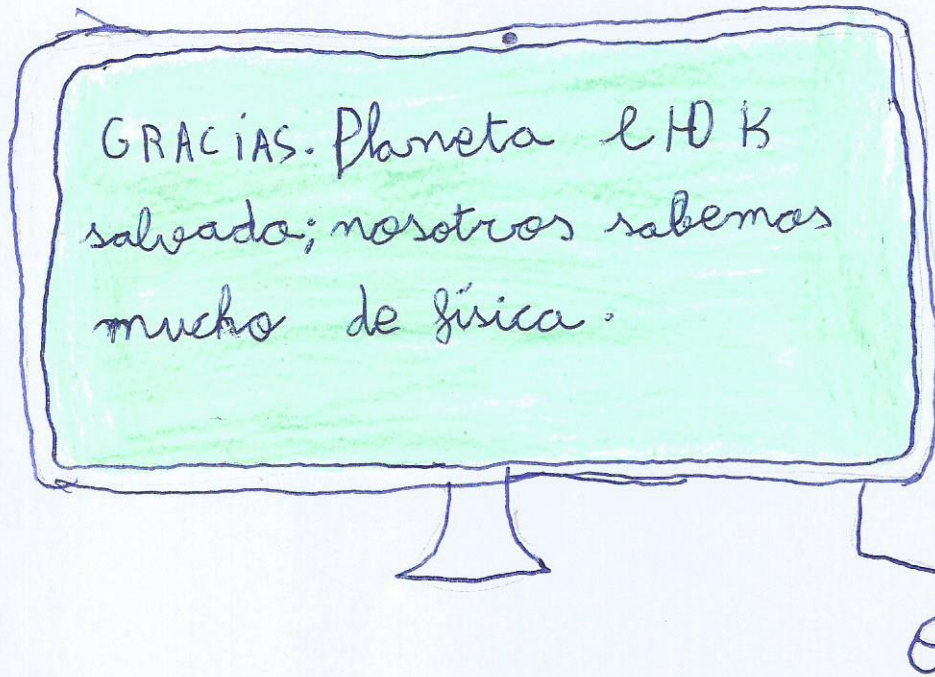 GRACIAS. Planeta
salvado; nosotros sabemos
mucho de física.